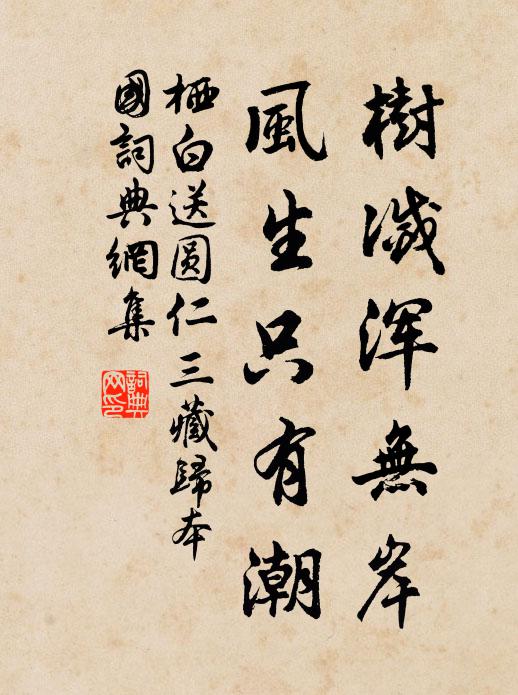 樹滅渾無岸
風生只有潮
栖白送圆仁三藏歸本
國詞典網集
詞典
网印